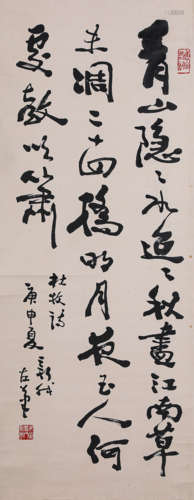 青山隐〻水迢〻秋盡江南草
未凋二十四橋明月夜玉人何
處教吹簫
杜牧詩
庚申夏
新我
左筆